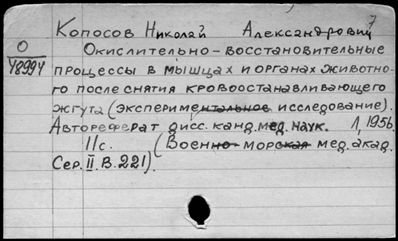 7
Копосов Николай Александрович
О
48994
Окислительно-восстановительные
процессы в мышцах и органах животно-
го после снятия кровоостанавливающего
жгута (экспериментальное исследование).
Автореферат дисс. канд. мед. наук. Л, 1956.
11с. (Военно-морская мед. акад.
Сер. II. В. 221).